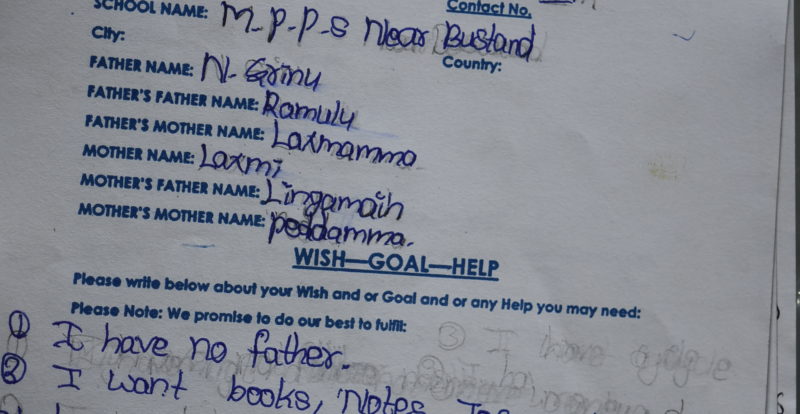 SCHOOL NAME: M.P.P.S Near Bustand
Contact No.
City:
Country:
FATHER NAME: N. Srinu
FATHER'S FATHER NAME: Ramulu
FATHER'S MOTHER NAME: Laxmamma
MOTHER NAME: Laxmi
MOTHER'S FATHER NAME: Lingamaih
MOTHER'S MOTHER NAME: Peddamma.
WISH—GOAL—HELP
Please write below about your Wish and or Goal and or any Help you may need:
Please Note: We promise to do our best to fulfil:
① I have no father.
② I want books, Notes
③ I have